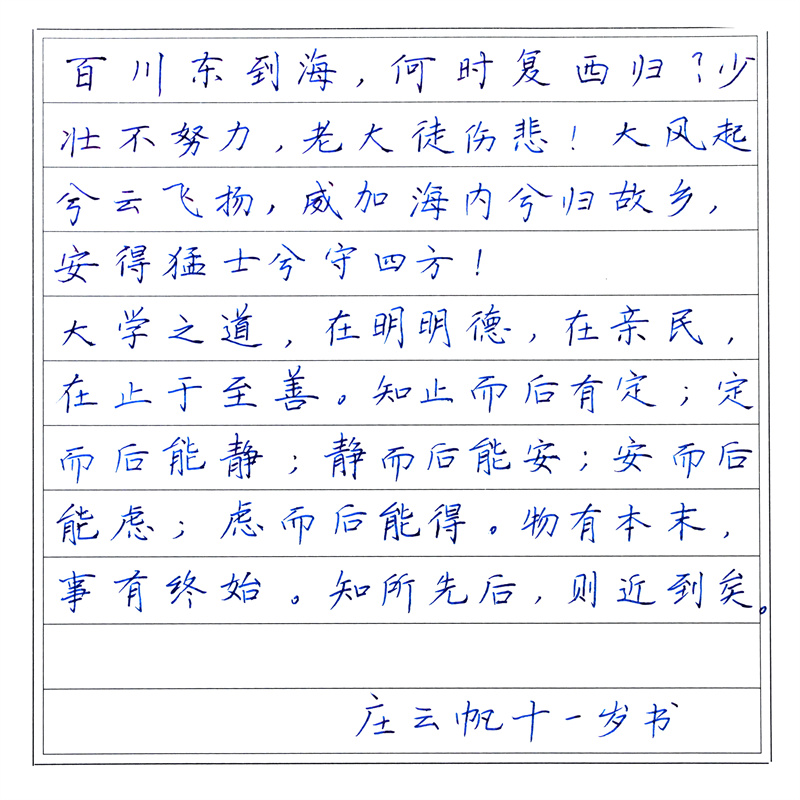 百川东到海,何时复西归?少
壮不努力,老大徒伤悲!大风起
兮云飞扬,威加海内兮归故乡,
安得猛士兮守四方!
大学之道,在明明德,在亲民,
在止于至善。知止而后有定;定
而后能静;静而后能安;安而后
能虑;虑而后能得。物有本末,
事有终始。知所先后,则近到矣。
庄云帆十一岁书